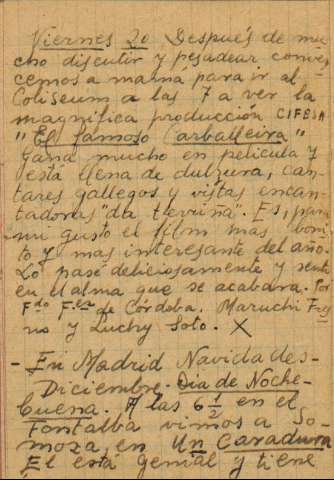 Viernes 20 Después de mu
cho discutir y pesadear conven
cemos a mamá para ir al
Coliseum a las 7 a ver la
magnífica producción CIFESA
"El famoso Carballeira"
Gana mucho en película y
está llena de dulzura, can-
tares gallegos y vistas encan-
tadoras "da terriña". Es, para
mi gusto el film mas boni
to y mas interesante del año.
Lo pasé deliciosamente y sentí
en el alma que se acabara. Por
Fdo Fez de Córdoba, Maruchi Fres
no y Luchy Soto. X
- En Madrid Navidades-
Diciembre. Dia de Noche-
buena. A las 6 1/2 en el
Fontalba vimos a So-
moza en Un Caradura
El está genial y tiene